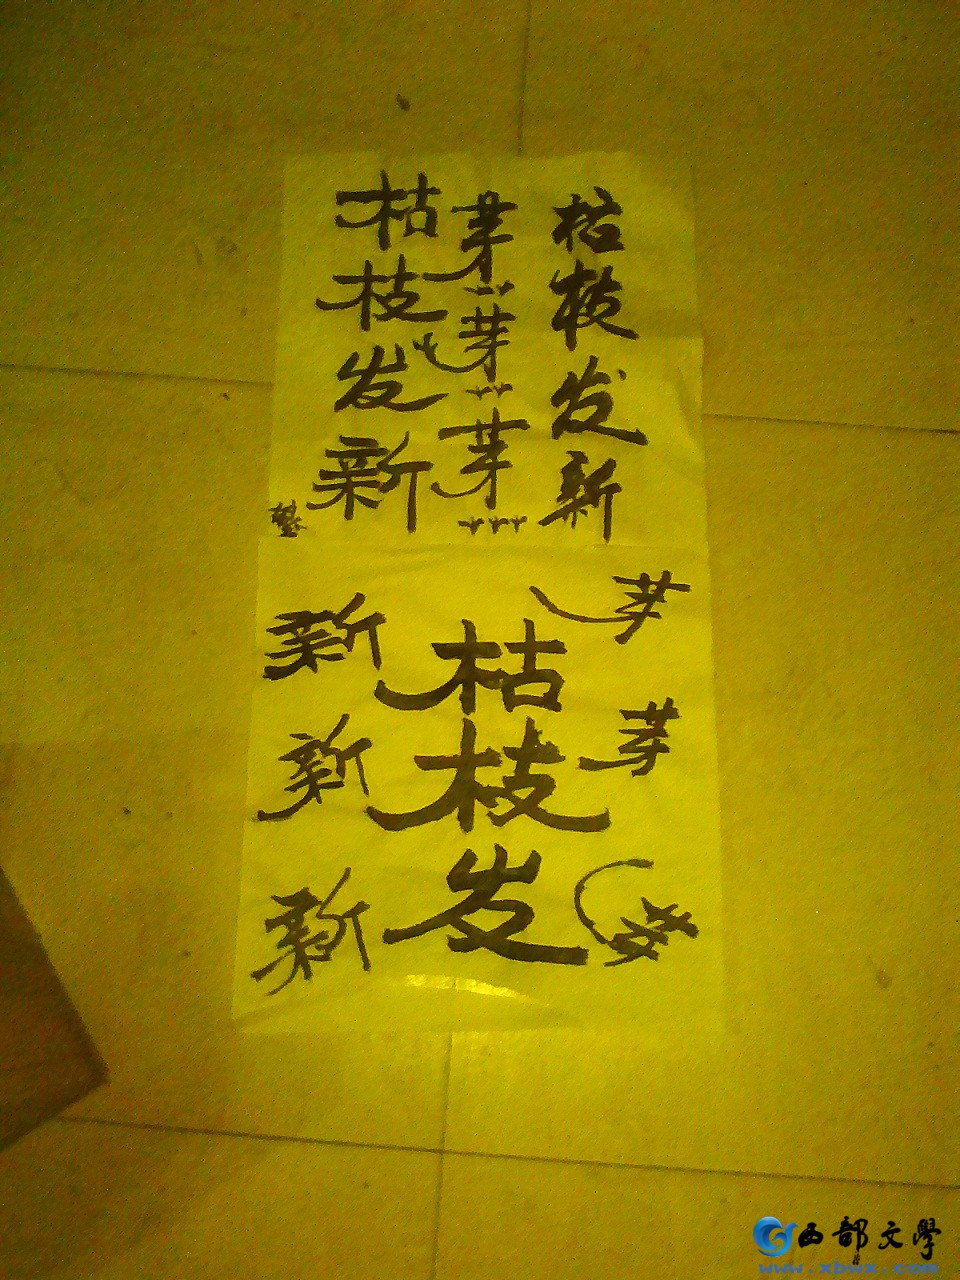 枯枝发新
芽芽芽
枯枝发新
芽芽芽
枯枝发
新新新
西部文學
www.xbwx.com